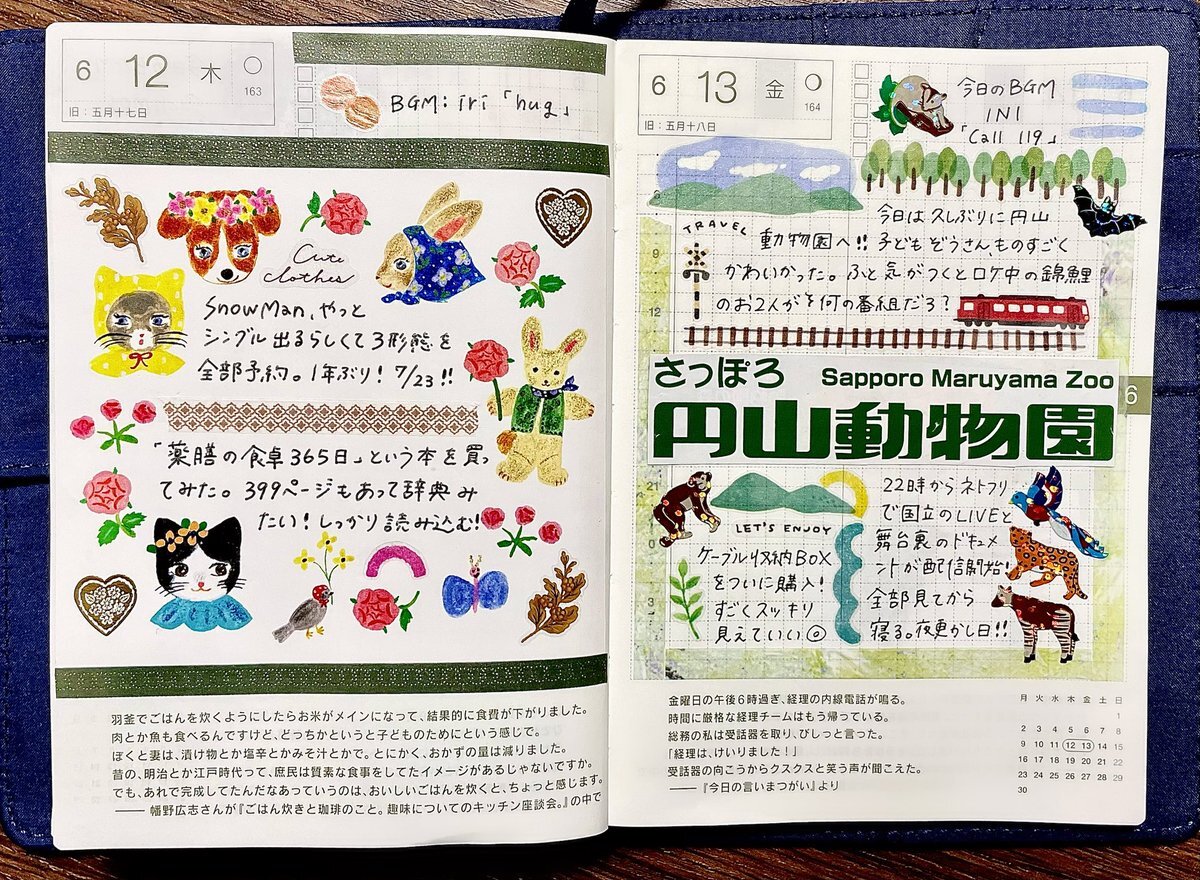 6 12 木
163
旧：五月十七日
BGM：iri「hug」
Cute
clothes
SnowMan、やっと
シングル出るらしくて3形態を
全部予約。1年ぶり！7/23!!
「薬膳の食卓365日」という本を買っ
てみた。399ページもあって辞典み
たい！しっかり読み込む！
羽釜でごはんを炊くようにしたらお米がメインになって、結果的に食費が下がりました。
肉とか魚も食べるんですけど、どっちかというと子どものためにという感じで。
ぼくと妻は、漬け物とか塩辛とかみそ汁とかで。とにかく、おかずの量は減りました。
昔の、明治とか江戸時代って、庶民は質素な食事をしてたイメージがあるじゃないですか。
でも、あれで完成してたんだなあっていうのは、おいしいごはんを炊くと、ちょっと感じます。
──幡野広志さんが『ごはん炊きと珈琲のこと。趣味についてのキッチン座談会。』の中で
6 13 金
164
旧：五月十八日
今日のBGM
INI
「Call 119」
TRAVEL
今日は久しぶりに円山
動物園へ!! 子どもぞうさん、ものすごく
かわいかった。ふと気がつくとロケ中の錦鯉
のお2人が⁉何の番組だろ？
9
12
さっぽろ Sapporo Maruyama Zoo
円山動物園
6
21
0
3
LET'S ENJOY
ケーブル収納BOX
をついに購入！
すごくスッキリ
見えていい◎
22時からネトフリ
で国立のLIVEと
舞台裏のドキュメ
ントが配信開始！
全部見てから
寝る。夜更かし日!!
金曜日の午後6時過ぎ、経理の内線電話が鳴る。
時間に厳格な経理チームはもう帰っている。
総務の私は受話器を取り、びしっと言った。
「経理は、けいりました！」
受話器の向こうからクスクスと笑う声が聞こえた。
──『今日の言いまつがい』より
月 火 水 木 金 土 日
1
2 3 4 5 6 7 8
9 10 11 12 13 14 15
16 17 18 19 20 21 22
23 24 25 26 27 28 29
30